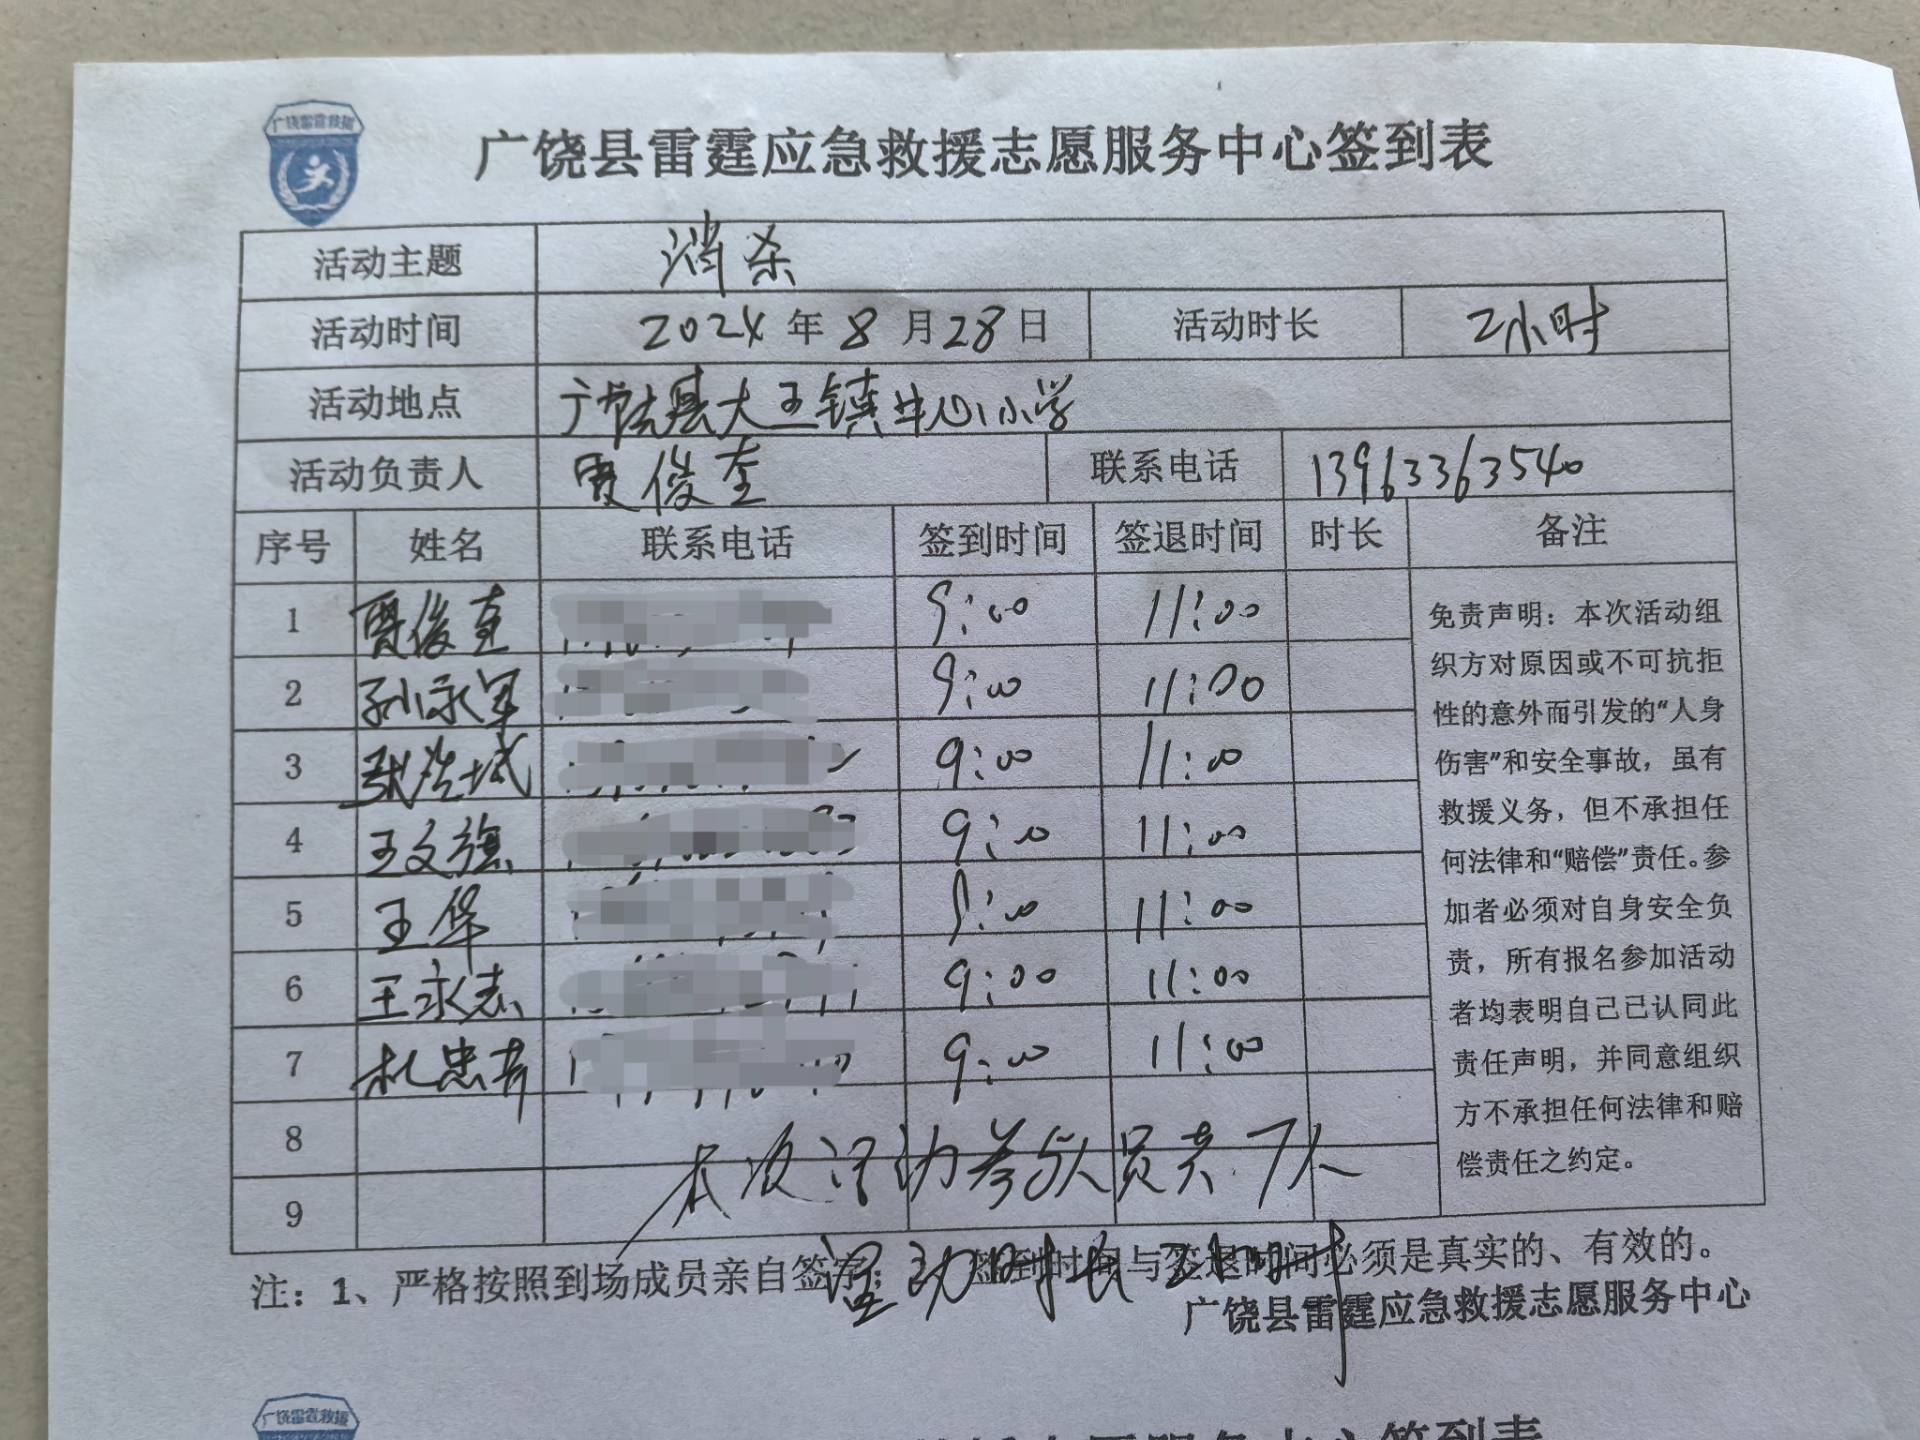 广饶雷霆救援
广饶县雷霆应急救援志愿服务中心签到表
活动主题 消杀
活动时间 2024年8月28日 活动时长 2小时
活动地点 广饶县大王镇中心小学
活动负责人 贾俊奎 联系电话 13963363540
序号 姓名 联系电话 签到时间 签退时间 时长 备注
1 贾俊奎 9:00 11:00
2 孙永军 9:00 11:00
3 张浩城 9:00 11:00
4 王文旗 9:00 11:00
5 王华 9:00 11:00
6 王永志 9:00 11:00
7 杜忠 9:00 11:00
8
9
免责声明：本次活动组
织方对原因或不可抗拒
性的意外而引发的“人身
伤害”和安全事故，虽有
救援义务，但不承担任
何法律和“赔偿”责任。参
加者必须对自身安全负
责，所有报名参加活动
者均表明自己已认同此
责任声明，并同意组织
方不承担任何法律和赔
偿责任之约定。
本次活动参与人员共7人
活动时长2小时
注：1、严格按照到场成员亲自签字；签到时间与签退时间必须是真实的、有效的。
广饶县雷霆应急救援志愿服务中心
广饶雷霆救援